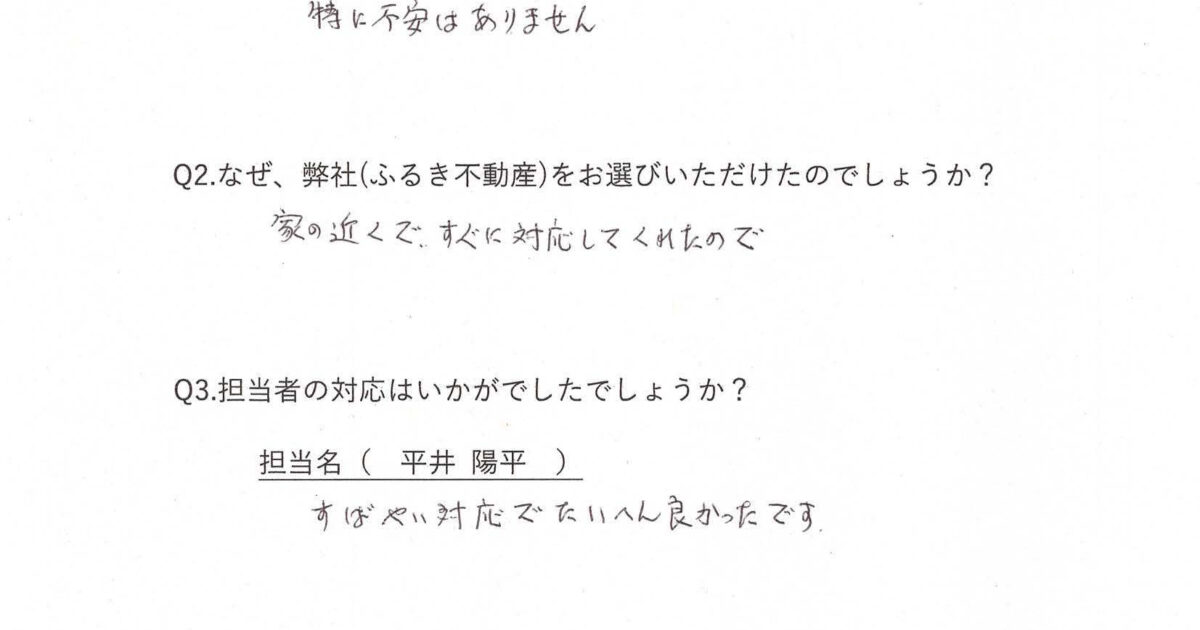 特に不安はありません
Q2.なぜ、弊社(ふるき不動産)をお選びいただけたのでしょうか？
家の近くで、すぐに対応してくれたので
Q3.担当者の対応はいかがでしたでしょうか？
担当名（　平井 陽平　）
すばやい対応でたいへん良かったです.